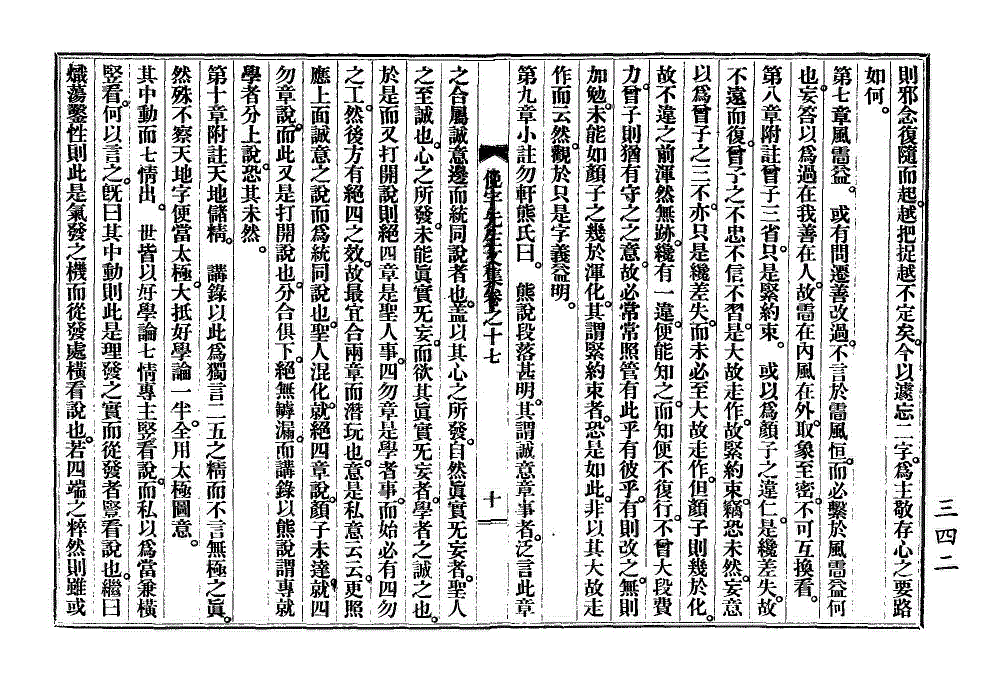 則邪念復隨而起。越把捉越不定矣。今以遽忘二字。爲主敬存心之要路
如何。
第七章風雷益。 或有問遷善改過。不言於雷風恒。而必繫於風雷益何
也。妄答以爲過在我善在人。故雷在內風在外。取象至密。不可互換看。
第八章附註曾子三省。只是緊約束。 或以爲顏子之違仁。是纔差失。故
不遠而復。曾子之不忠不信不習。是大故走作。故緊約束。竊恐未然。妄意
以爲曾子之三不。亦只是纔差失。而未必至大故走作。但顏子則幾於化。
故不違之前渾然無跡。纔有一違。便能知之。而知便不復行。不曾大段費
力。曾子則猶有守之之意。故必常常照管有此乎有彼乎。有則改之。無則
加勉。未能如顏子之幾於渾化。其謂緊約束者。恐是如此。非以其大故走
作而云然。觀於只是字義益明。
第九章小註勿軒熊氏曰。 熊說段落甚明。其謂誠意章事者。泛言此章
先生文集卷之十七
十
之合屬誠意邊而統同說者也。蓋以其心之所發。自然眞實无妄者。聖人
之至誠也。心之所發。未能眞實无妄。而欲其眞實无妄者。學者之誠之也。
於是而又打開說則絕四章是聖人事。四勿章是學者事。而始必有四勿
之工。然後方有絕四之效。故最宜合兩章而潛玩也。意是私意云云。更照
應上面誠意之說而爲統同說也。聖人混化。就絕四章說。顏子未達。就四
勿章說。而此又是打開說也。分合俱下。絕無罅漏。而講錄以熊說謂專就
學者分上說。恐其未然。
第十章附註天地儲精。 講錄以此爲獨言二五之精而不言無極之眞。
然殊不察天地字便當太極。大抵好學論一半。全用太極圖意。
其中動而七情出。 世皆以好學論七情專主竪看說。而私以爲當兼橫
竪看。何以言之。旣曰其中動則此是理發之實而從發者竪看說也。繼曰
熾蕩鑿性則此是氣發之機而從發處橫看說也。若四端之粹然則雖或
三四二